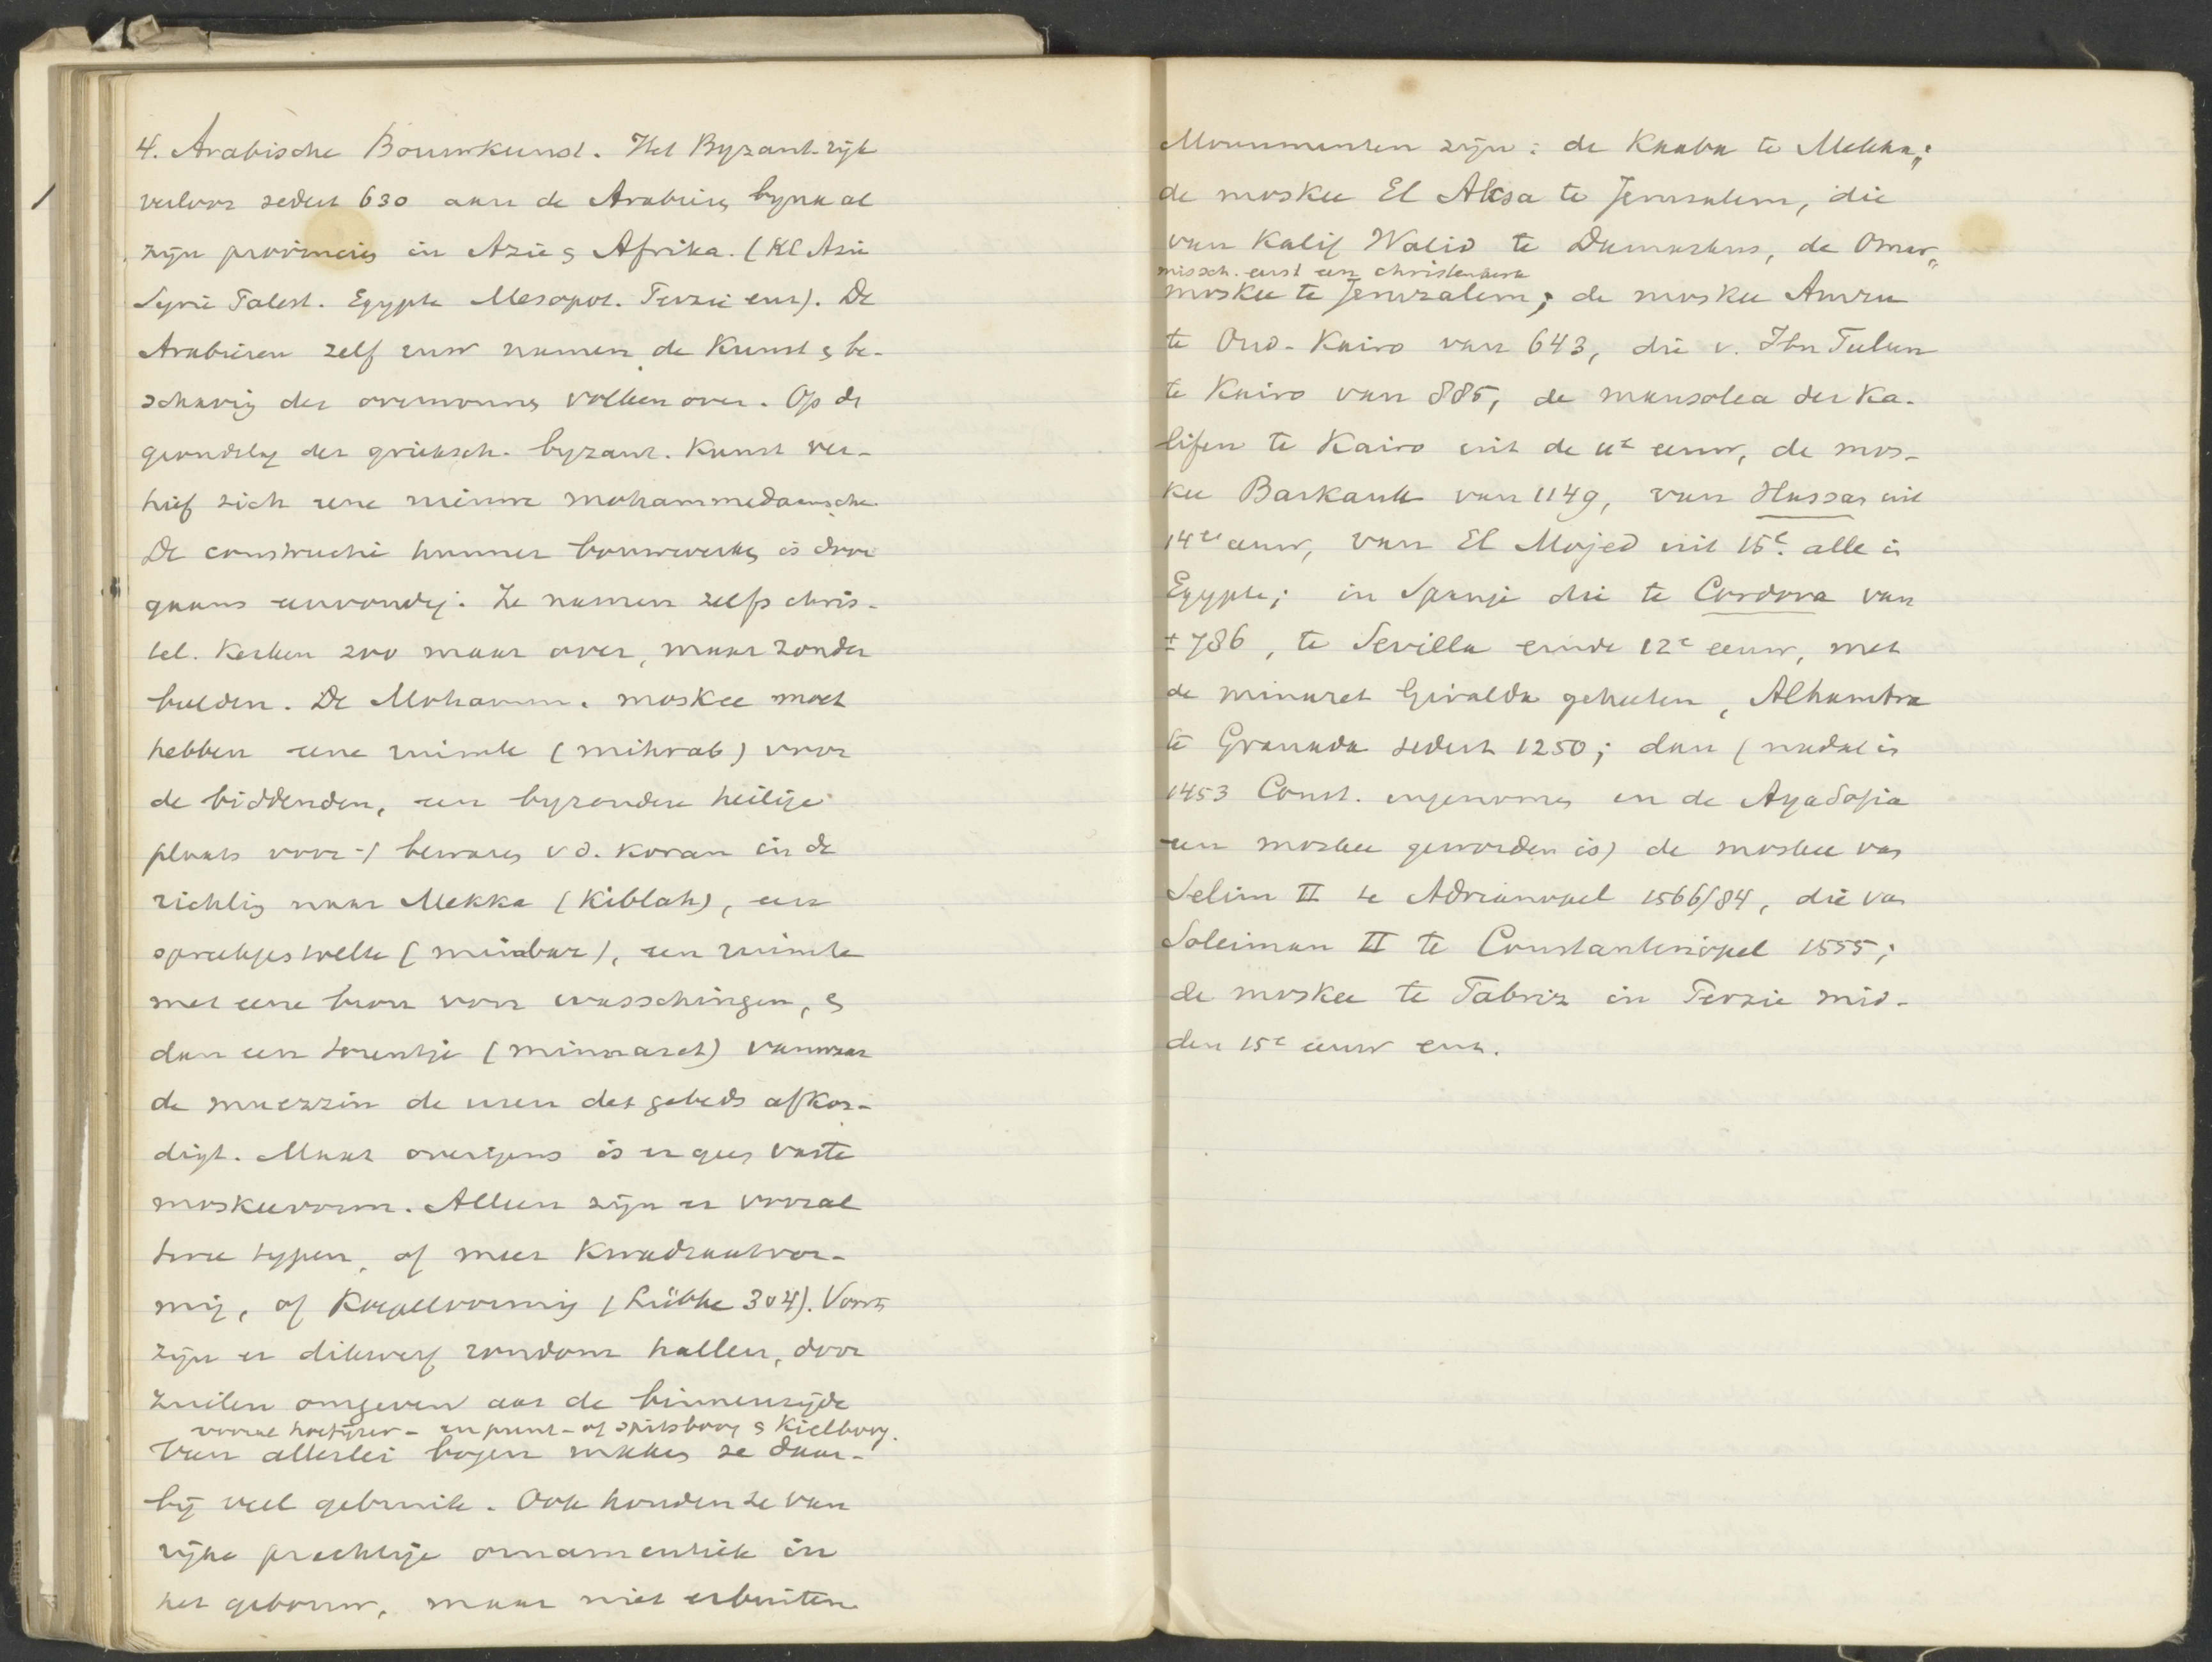 4. Arabische Bouwkunst. Het Byzant. rijk
verloor sedert 630 aan de Arabieren bijna al
zijn provincies in Azie & Afrika. (Kl Azie
Syrie Palest. Egypte Mesopot. Perzie enz). De
Arabieren zelf ruw namen de Kunst & be-
schaving der overwonnen volken over. Op de
grondslag der grieksch. byzant. Kunst ver-
hief zich eene nieuwe mohammedaansche
De constructie hunner bouwwerken is door
gaans eenvoudig. Ze namen zelfs chris-
tel. Kerken zoo maar over, maar zonder
beelden. De Mohamm. moskee moet
hebben eene ruimte (mihrab) voor
de biddenden, een byzondere heilige
plaats voor 't bewaren v d. Koran in de
richting naar Mekka (Kiblah), een
spreekgestoelte (minbar), een ruimte
met eene bron voor wasschingen, &
dan een torentje (minaaret) vanwaar
de muezzin de uren des gebeds afkon-
digt. Maar overigens is er geen vaste
moskeevorm. Alleen zijn er vooral
twee typen, of meer Kwadraatvor-
mig, of Koepelvormig (Lübke 304). Voorts
zijn er dikwerf rondom hallen, door
zuilen omgeven aan de binnenzijde
vooral hoefijzer- en punt- of spitsboog & Kielboog.
Van allerlei bogen maken ze daar-
bij veel gebruik. Ook houden ze van
rijke prachtige ornamentiek in
het gebouw, maar niet erbuiten
Monumenten zijn: de Kaaba te Mekka;
de moskee El Aksa te Jerusalem, die
van Kalif Walid te Damaskus, de Omar-
missch. eerst een christenkerk
moskee te Jeruzalem; de moskee Amru
te Oud-Kairo van 643, die v. Ibn Tulun
te Kairo van 885, de mausolea der Ka-
lifen te Kairo uit de 11e eeuw, de mos-
kee Barkauk van 1149, van Hassan uit
14e eeuw, van El Mojed uit 15e. alle in
Egypte; in Spanje die te Cordova van
± 786, te Sevilla einde 12e eeuw, met
de minaret Giralda geheeten, Alhambra
te Granada sedert 1250; dan (nadat in
1453 Const. ingenomen en de AyaSofia
een moskee geworden is) de moskee van
Selim II te Adrianopel 1566/84, die van
Soleiman II te Constantinopel 1555;
de moskee te Tabriz in Perzie mid-
den 15e eeuw enz.